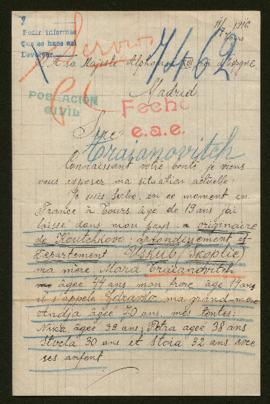 Pedir informes
que se hace así
Devolver
Servio
7462
1916
A sa Majesté Alphonse d'Espagne
Madrid
POBLACIÓN
CIVIL
Fecho
e.a.e.
Sire
Trajanovitch
Connaissant votre bonté je viens
vous exposer ma situation actuelle:
Je suis Serbe, en ce moment en
France à Tours âgé de 19 ans j'ai
laissé dans mon pays: originaire
de arrondissement et
Departement Uskub (Skoplié)
ma mère Mara Traïanovitch
âgée 47 ans mon frère âgé 17 ans
il s'appelle Zdravko ma grand-mère
Andja âgée 70 ans, mes tantes:
âgée 39 ans, Petra âgée 38 ans
30 ans et Stoïa 32 ans avec
ses enfant